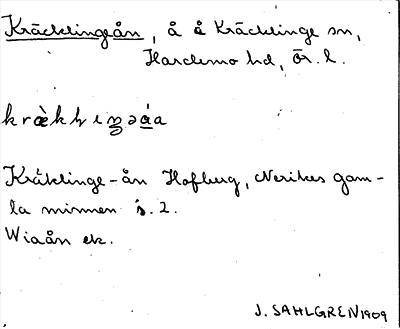 Kräcklingeån, å i Kräcklinge sn,
Hardemo hd, Ör. l.
Kräklinge-ån Hofberg, Nerikes gam-
la minnen s. 2.
Wiaån ek.
J. SAHLGREN 1909